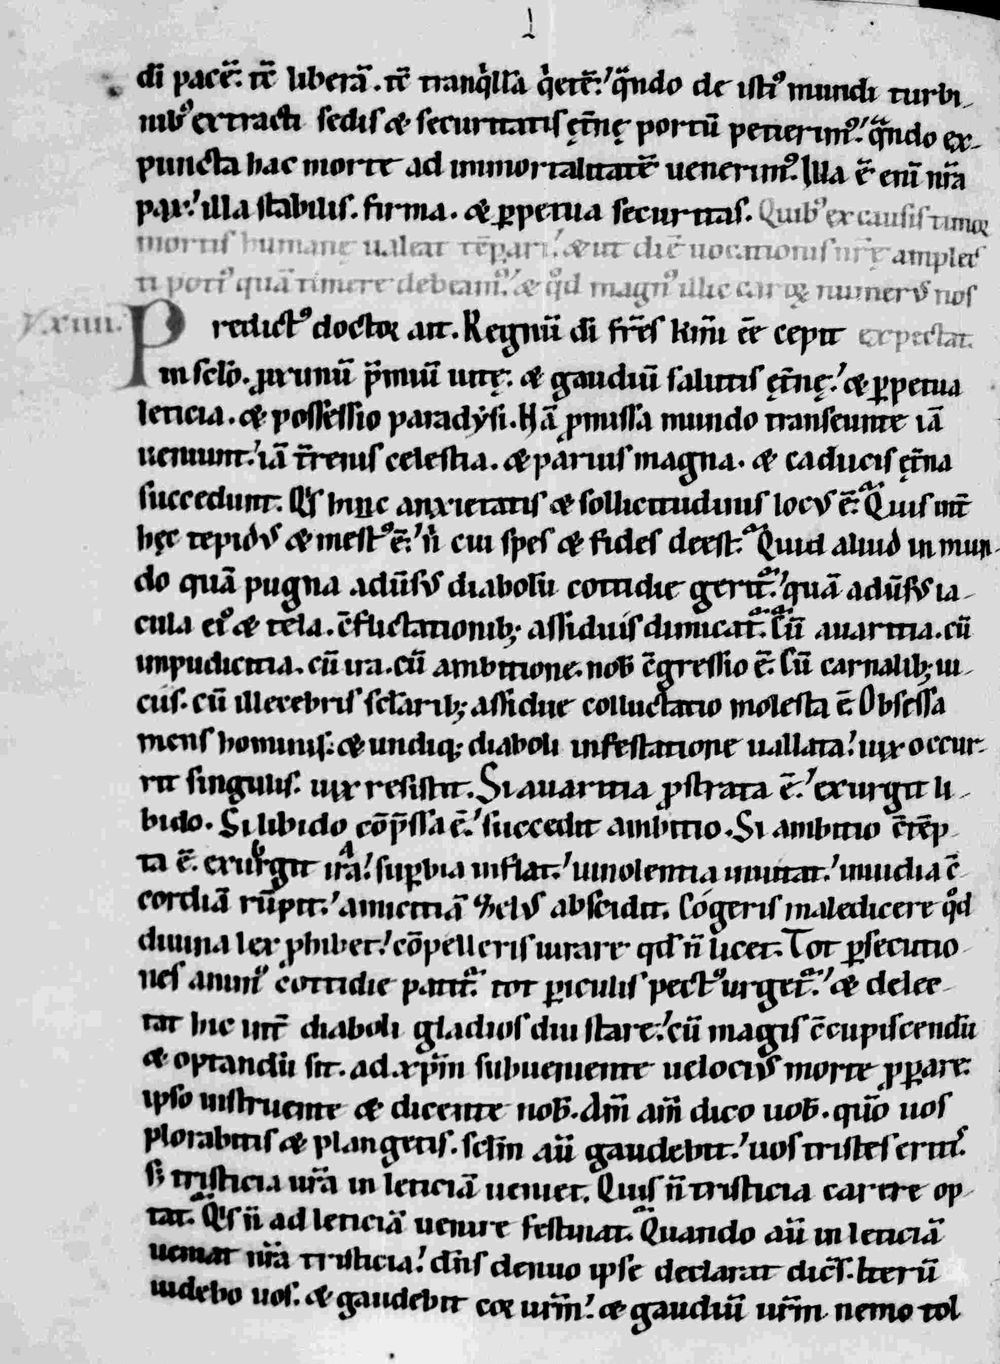 di pacē. tē liberā. tē tranq̇llā q̇etē. q̄ndo de isti᾽ mundi turbi-
nib᾽ extracti sedis & securitatis ęt̄nę portū petierim᾽. q̄ndo ex-
puncta hac morte ad immortalitatē uenerim᾽. Illa ē enī nr̄a
pax. illa stabilis. firma. & ꝑpetua securitas. Quib᾽ ex causis timoꝝ
mortis humanę ualeat tēpari. & ut diē uocationis nr̄ę amplec
ti poti᾽ quā timere debeam᾽. & qd̊ magn᾽ illic caroꝝ numerus nos
expectat.
V. xiiii. Predict᾽ doctor ait. Regnū di fr̄es kmī eē cepit
in sclo. proximū p̄miū uitę. & gaudiū salutis ęt̄nę. & ꝑpetua
leticia. & possessio paradysi. Hā ꝓmissa mundo transeunte iā
ueniunt. iā t̄renis celestia. & paruis magna. & caducis ęt̄na
succedunt. Qis hinc anxietatis & sollicitudinis locus ē. Quis int̄
hęc tepidus & mest᾽ ē. n̄ cui spes & fides deest. Quid aliud in mun-
do quā pugna aduersus diabolū cottidie gerit᾽. quā aduersus ia-
cula ei᾽ & tela. c̄flictationib; assiduis dimicat᾽. Cū auaritia. cū
impudicitia. cū ira. cū ambitione. nob̄ c̄gressio ē. Cū carnalib; ui-
ciis. cū illecebris sclarib; assidue colluctatio molesta ē. Obsessa
mens hominis. & undiq; diaboli infestatione uallata. uix occur-
rit singulis. uix resistit. Si auaritia ꝓstrata ē. exurgit li-
bido. Si libido cōp̄ssa ē. succedit ambitio. Si ambitio c̄tēp
ta ē. exurgit ira. supbia inflat. uinolentia inuitat. inuidia c̄
cordiā rūpit. amicitiā zelus abscidit. Cógeris maledicere qd̊
diuina lex ꝓhibet. cōpelleris iurare qd n̄ licet. Tot ꝑsecutio-
nes anim᾽ cottidie patit᾽. tot ꝑiculis pect᾽ urget᾽. & delec-
tat hic int̄ diaboli gladios diu stare. cū magis c̄cupiscendū
& optandū sit. ad xp̄m subueniente uelocius morte ꝓꝑare.
ipso instruente & dicente nob̄. Am̄ am̄ dico uob̄. quō uos
plorabitis & plangetis. sclm̄ aū gaudebit. uos tristes eritis.
s; tristicia ur̄a in leticiā ueniet. Quis n̄ tristicia carere op-
tat. Qis n̄ ad leticiā uenire festinat. Quando aū in leticiā
ueniat nr̄a tristicia. dn̄s denuo ipse declarat dicēs. Iterū
uidebo uos. & gaudebit cor urm̄. & gaudiū urm̄ nemo tol